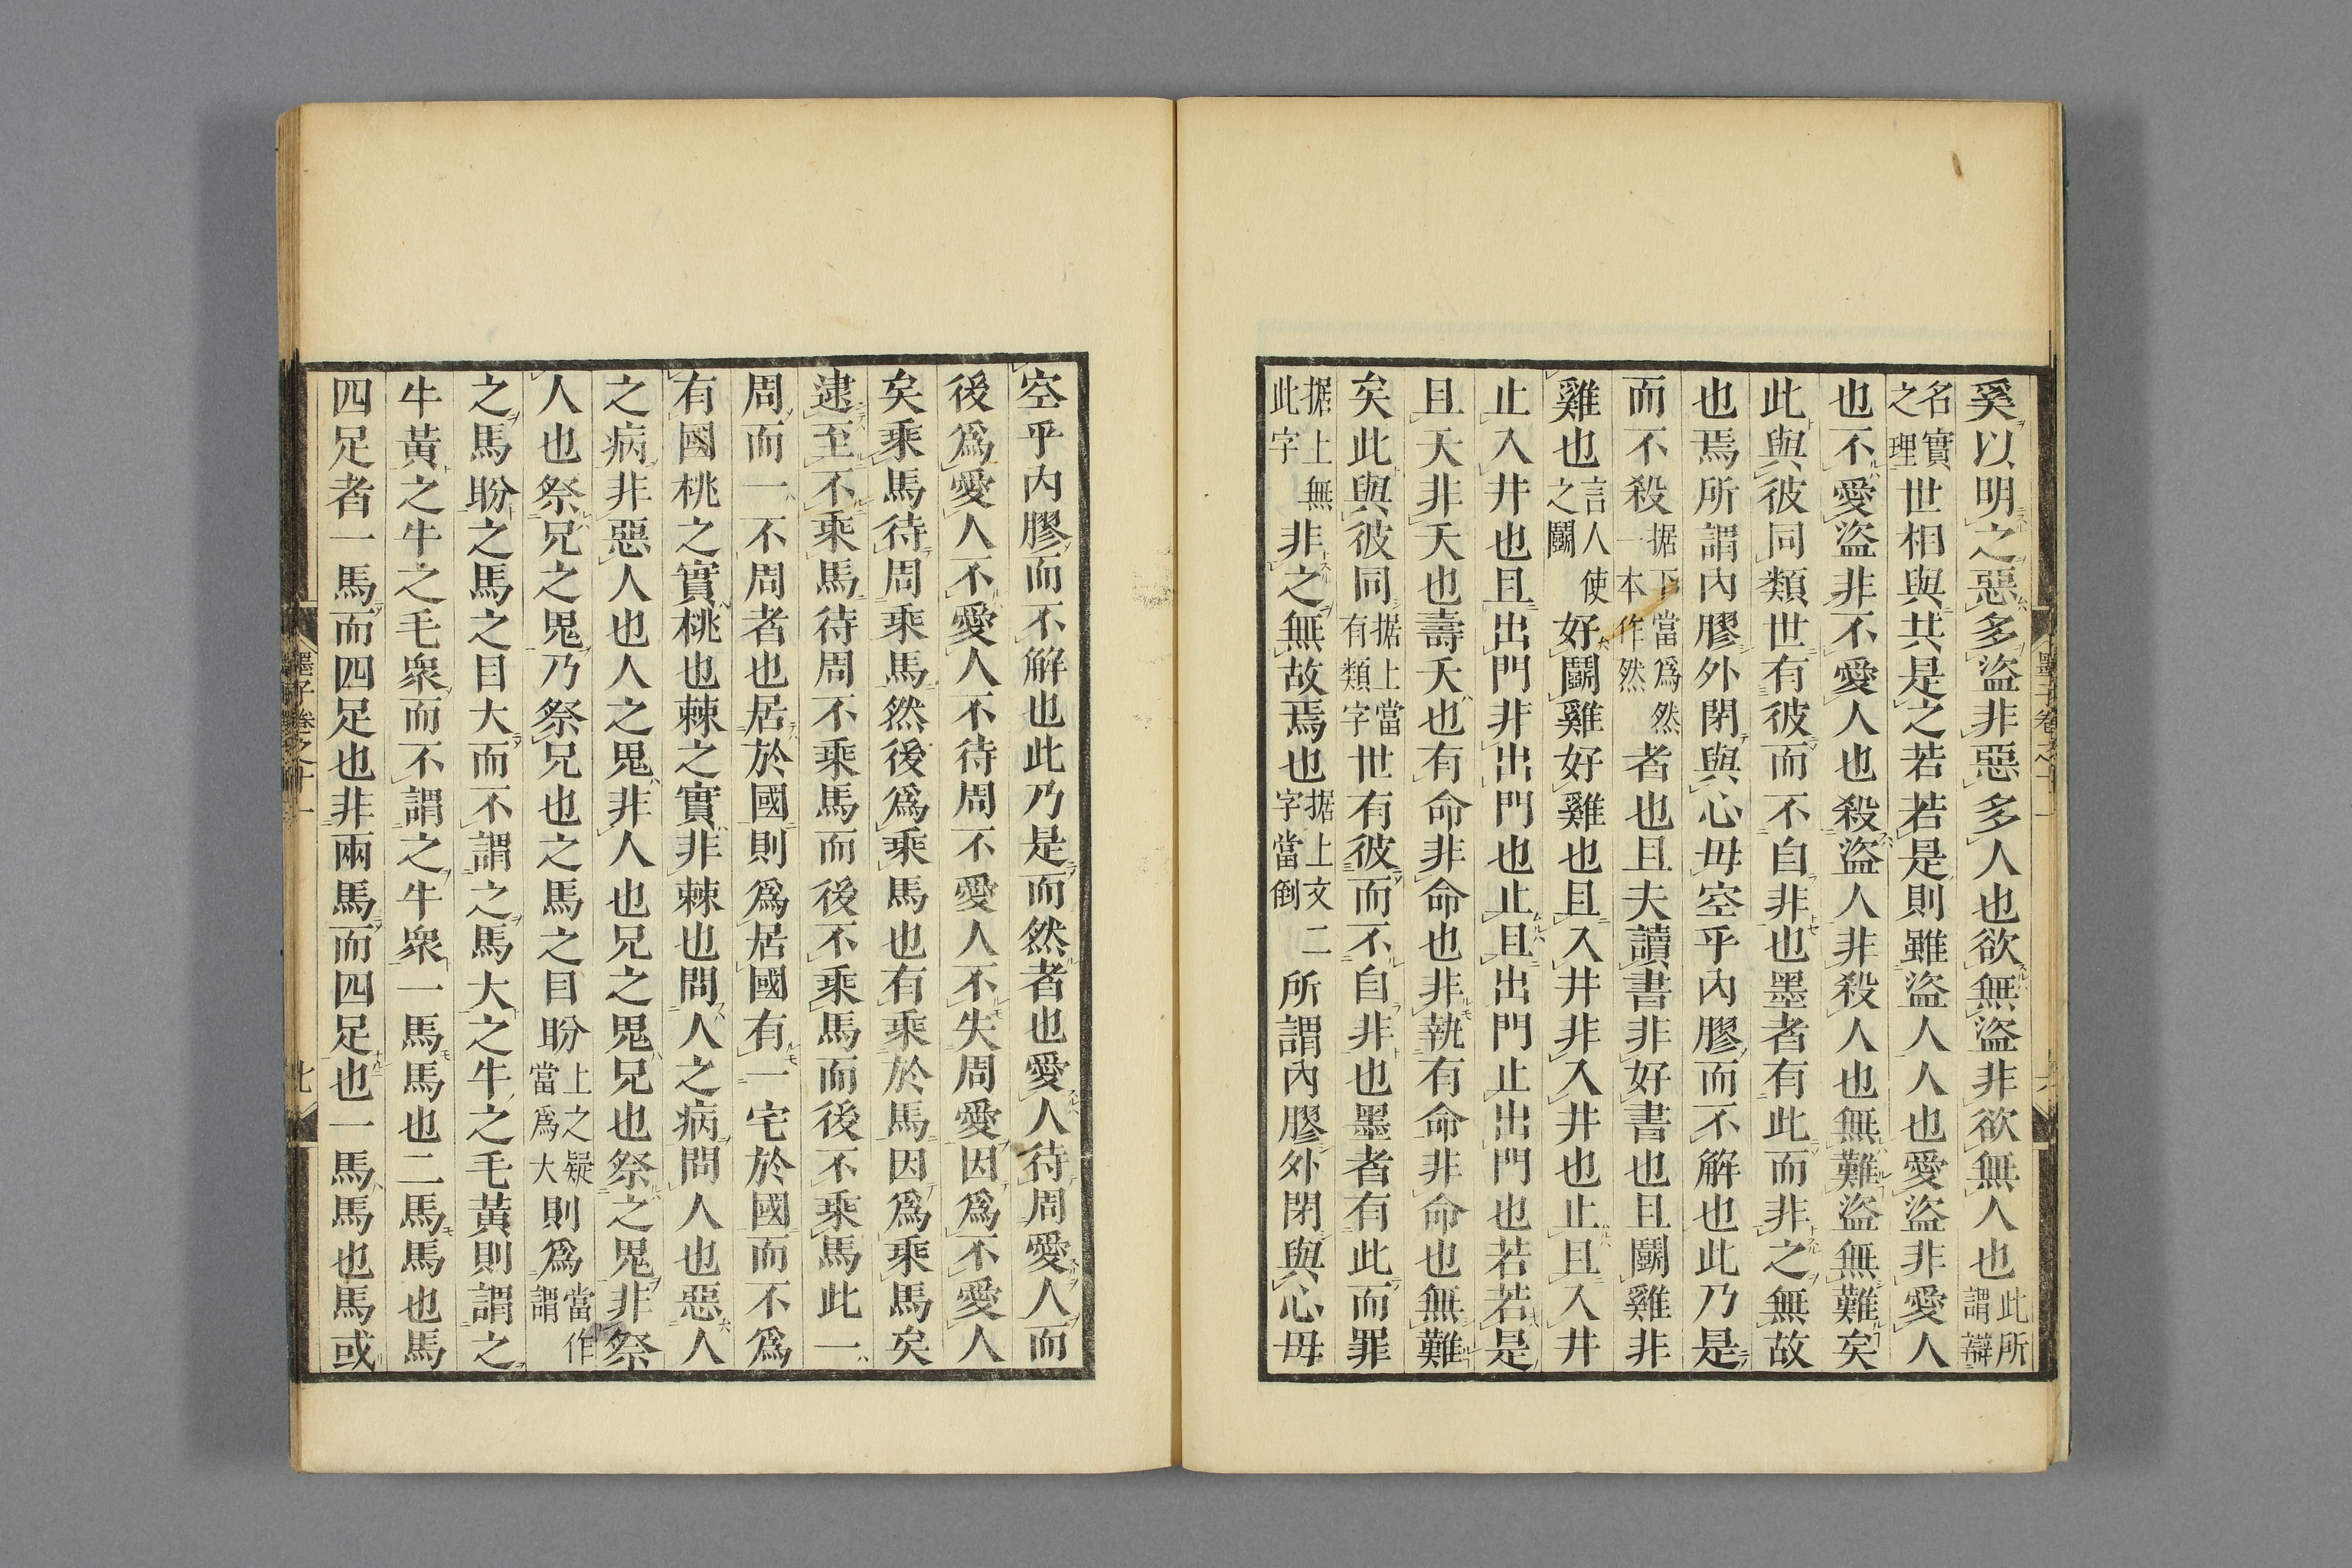 奚以明之惡多盜非惡多人也欲無盜非欲無人也此所謂辯
名實之理世相與共是之若若是則雖盜人人也愛盜非愛人
也不愛盜非不愛人也殺盜人非殺人也無難盜無難矣
此與彼同類世有彼而不自非也墨者有此而非之無故
也焉所謂內膠外閉與心毋空乎內膠而不解也此乃是
而不殺据下當爲然一本作然者也且夫讀書非好書也且鬬雞非
雞也言人使之鬬好鬬雞好雞也且入井非入井也止且入井
止入井也且出門非出門也止且出門止出門也若若是
且夭非夭也壽夭也有命非命也非執有命非命也無難
矣此與彼同据上當有類字世有彼而不自非也墨者有此而罪
据上無此字非之無故焉也据上文二字當倒所謂內膠外閉與心毋
空乎內膠而不解也此乃是而然者也愛人待周愛人而
後爲愛人不愛人不待周不愛人不失周愛因爲不愛人
矣乘馬待周乘馬然後爲乘馬也有乘於馬因爲乘馬矣
逮至不乘馬待周不乘馬而後不乘馬而後不乘馬此一
周而一不周者也居於國則爲居國有一宅於國而不爲
有國桃之實桃也棘之實非棘也問人之病問人也惡人
之病非惡人也人之鬼非人也兄之鬼兄也祭之鬼非祭
人也祭兄之鬼乃祭兄也之馬之目盼上之疑當爲大則爲當作謂
之馬盼之馬之目大而不謂之馬大之牛之毛黃則謂之
牛黃之牛之毛衆而不謂之牛衆一馬馬也二馬馬也馬
四足者一馬而四足也非兩馬而四足也一馬馬也馬或
墨子卷之十一
六
墨子卷之十一
七